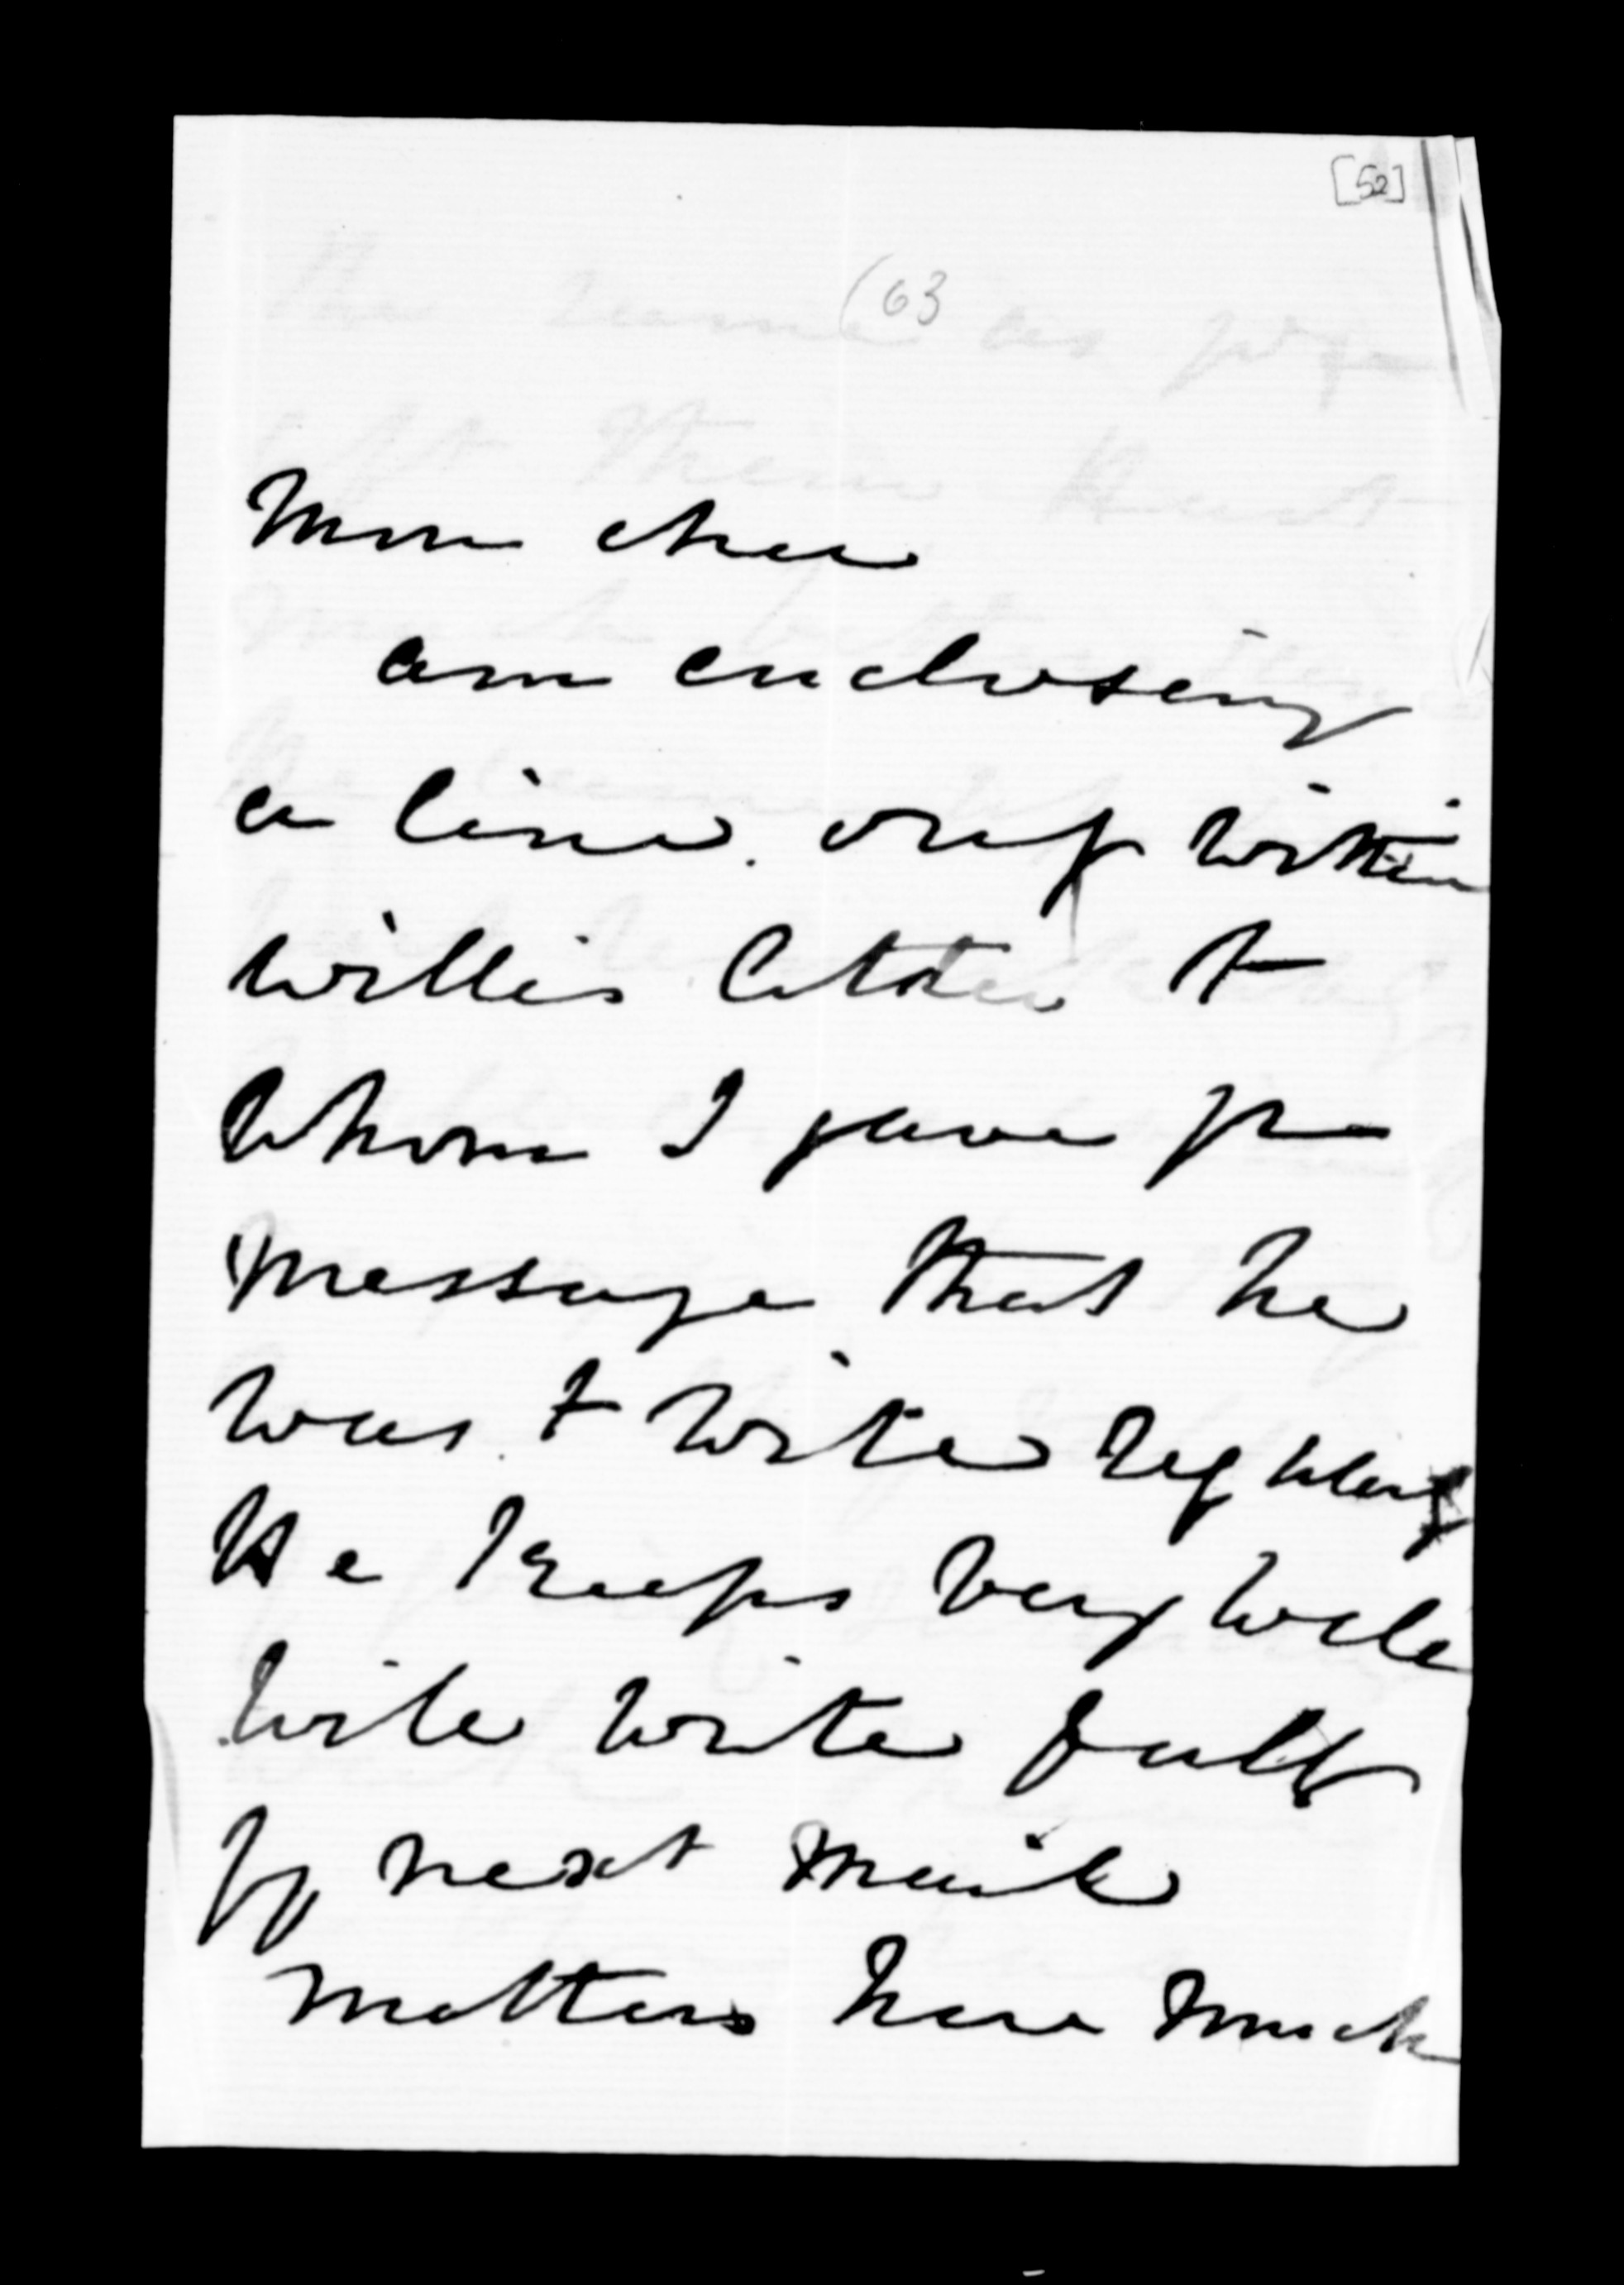 [52]
(63
Mon cher
am enclosing
a line only within
Willis letter to
whom I gave yr
message that he
was to write regularly
He keeps very well
will write fully
by next mail
Matters here much